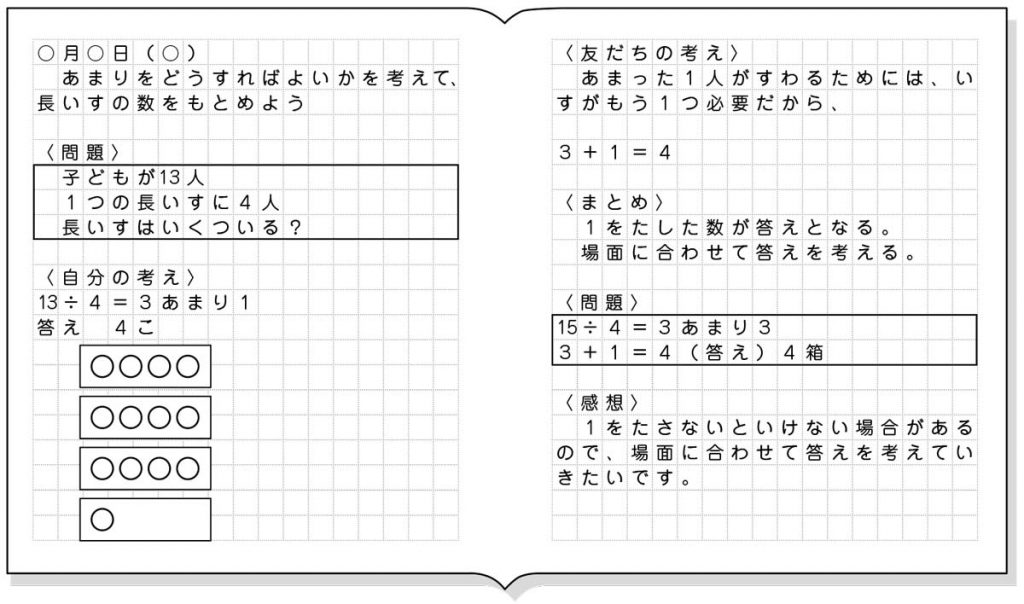 ○月○日（○）
あまりをどうすればよいかを考えて、
長いすの数をもとめよう
〈問題〉
子どもが13人
1つの長いすに4人
長いすはいくついる？
〈自分の考え〉
13÷4＝3あまり1
答え　4こ
〈友だちの考え〉
あまった1人がすわるためには、い
すがもう1つ必要だから、
3＋1＝4
〈まとめ〉
1をたした数が答えとなる。
場面に合わせて答えを考える。
〈問題〉
15÷4＝3あまり3
3＋1＝4（答え）4箱
〈感想〉
1をたさないといけない場合がある
ので、場面に合わせて答えを考えてい
きたいです。